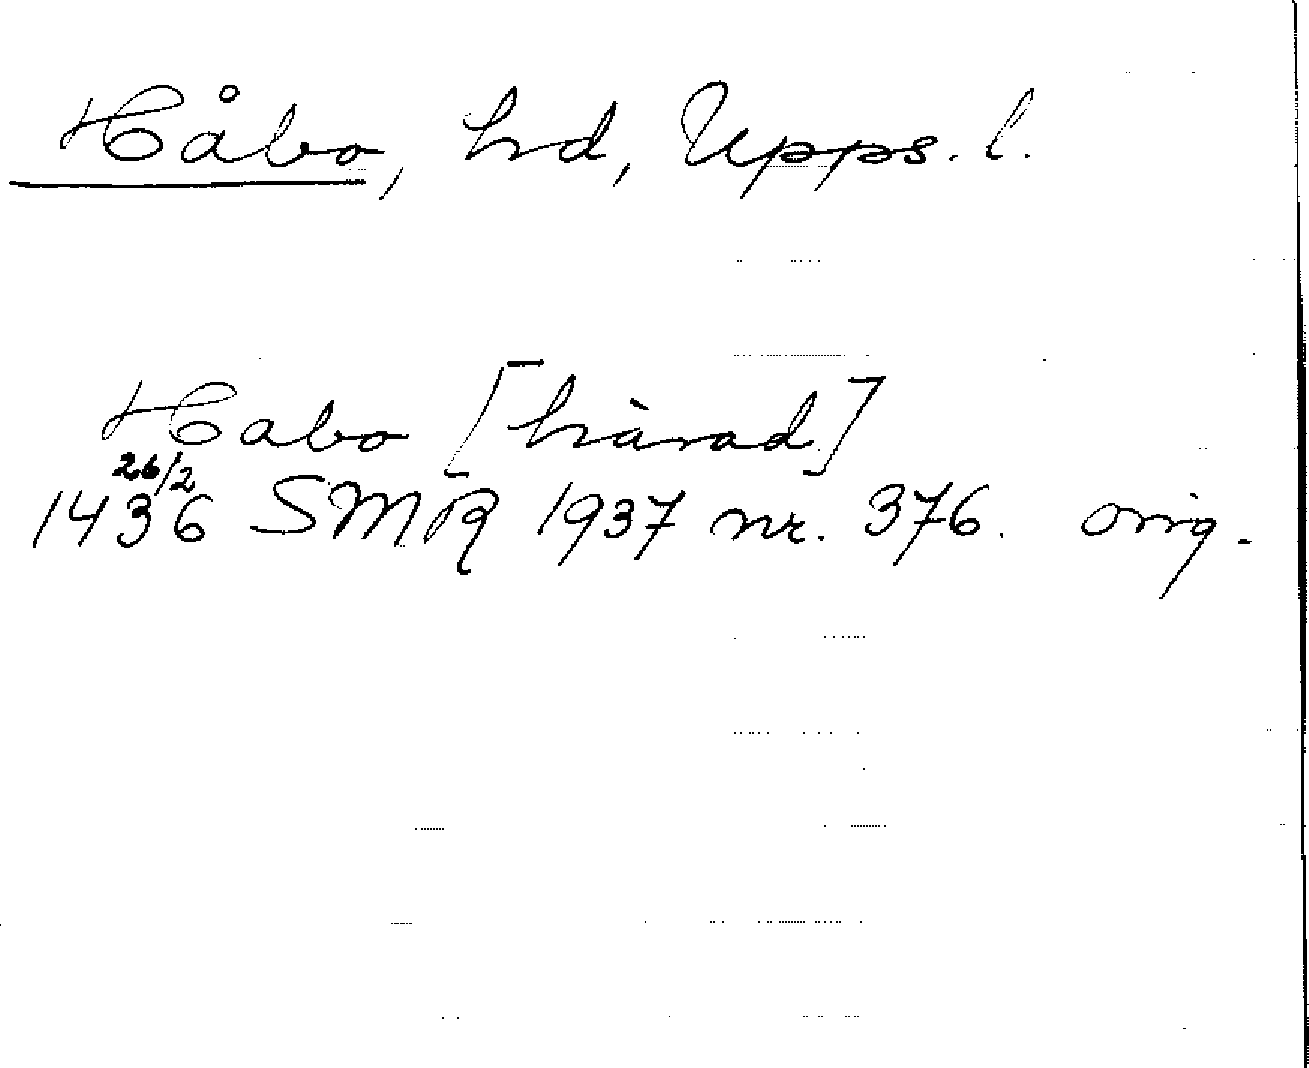 Håbo, hd, Upps. l.
Habo [härad]
26/2
1436 SMR 1937 nr. 376. orig.